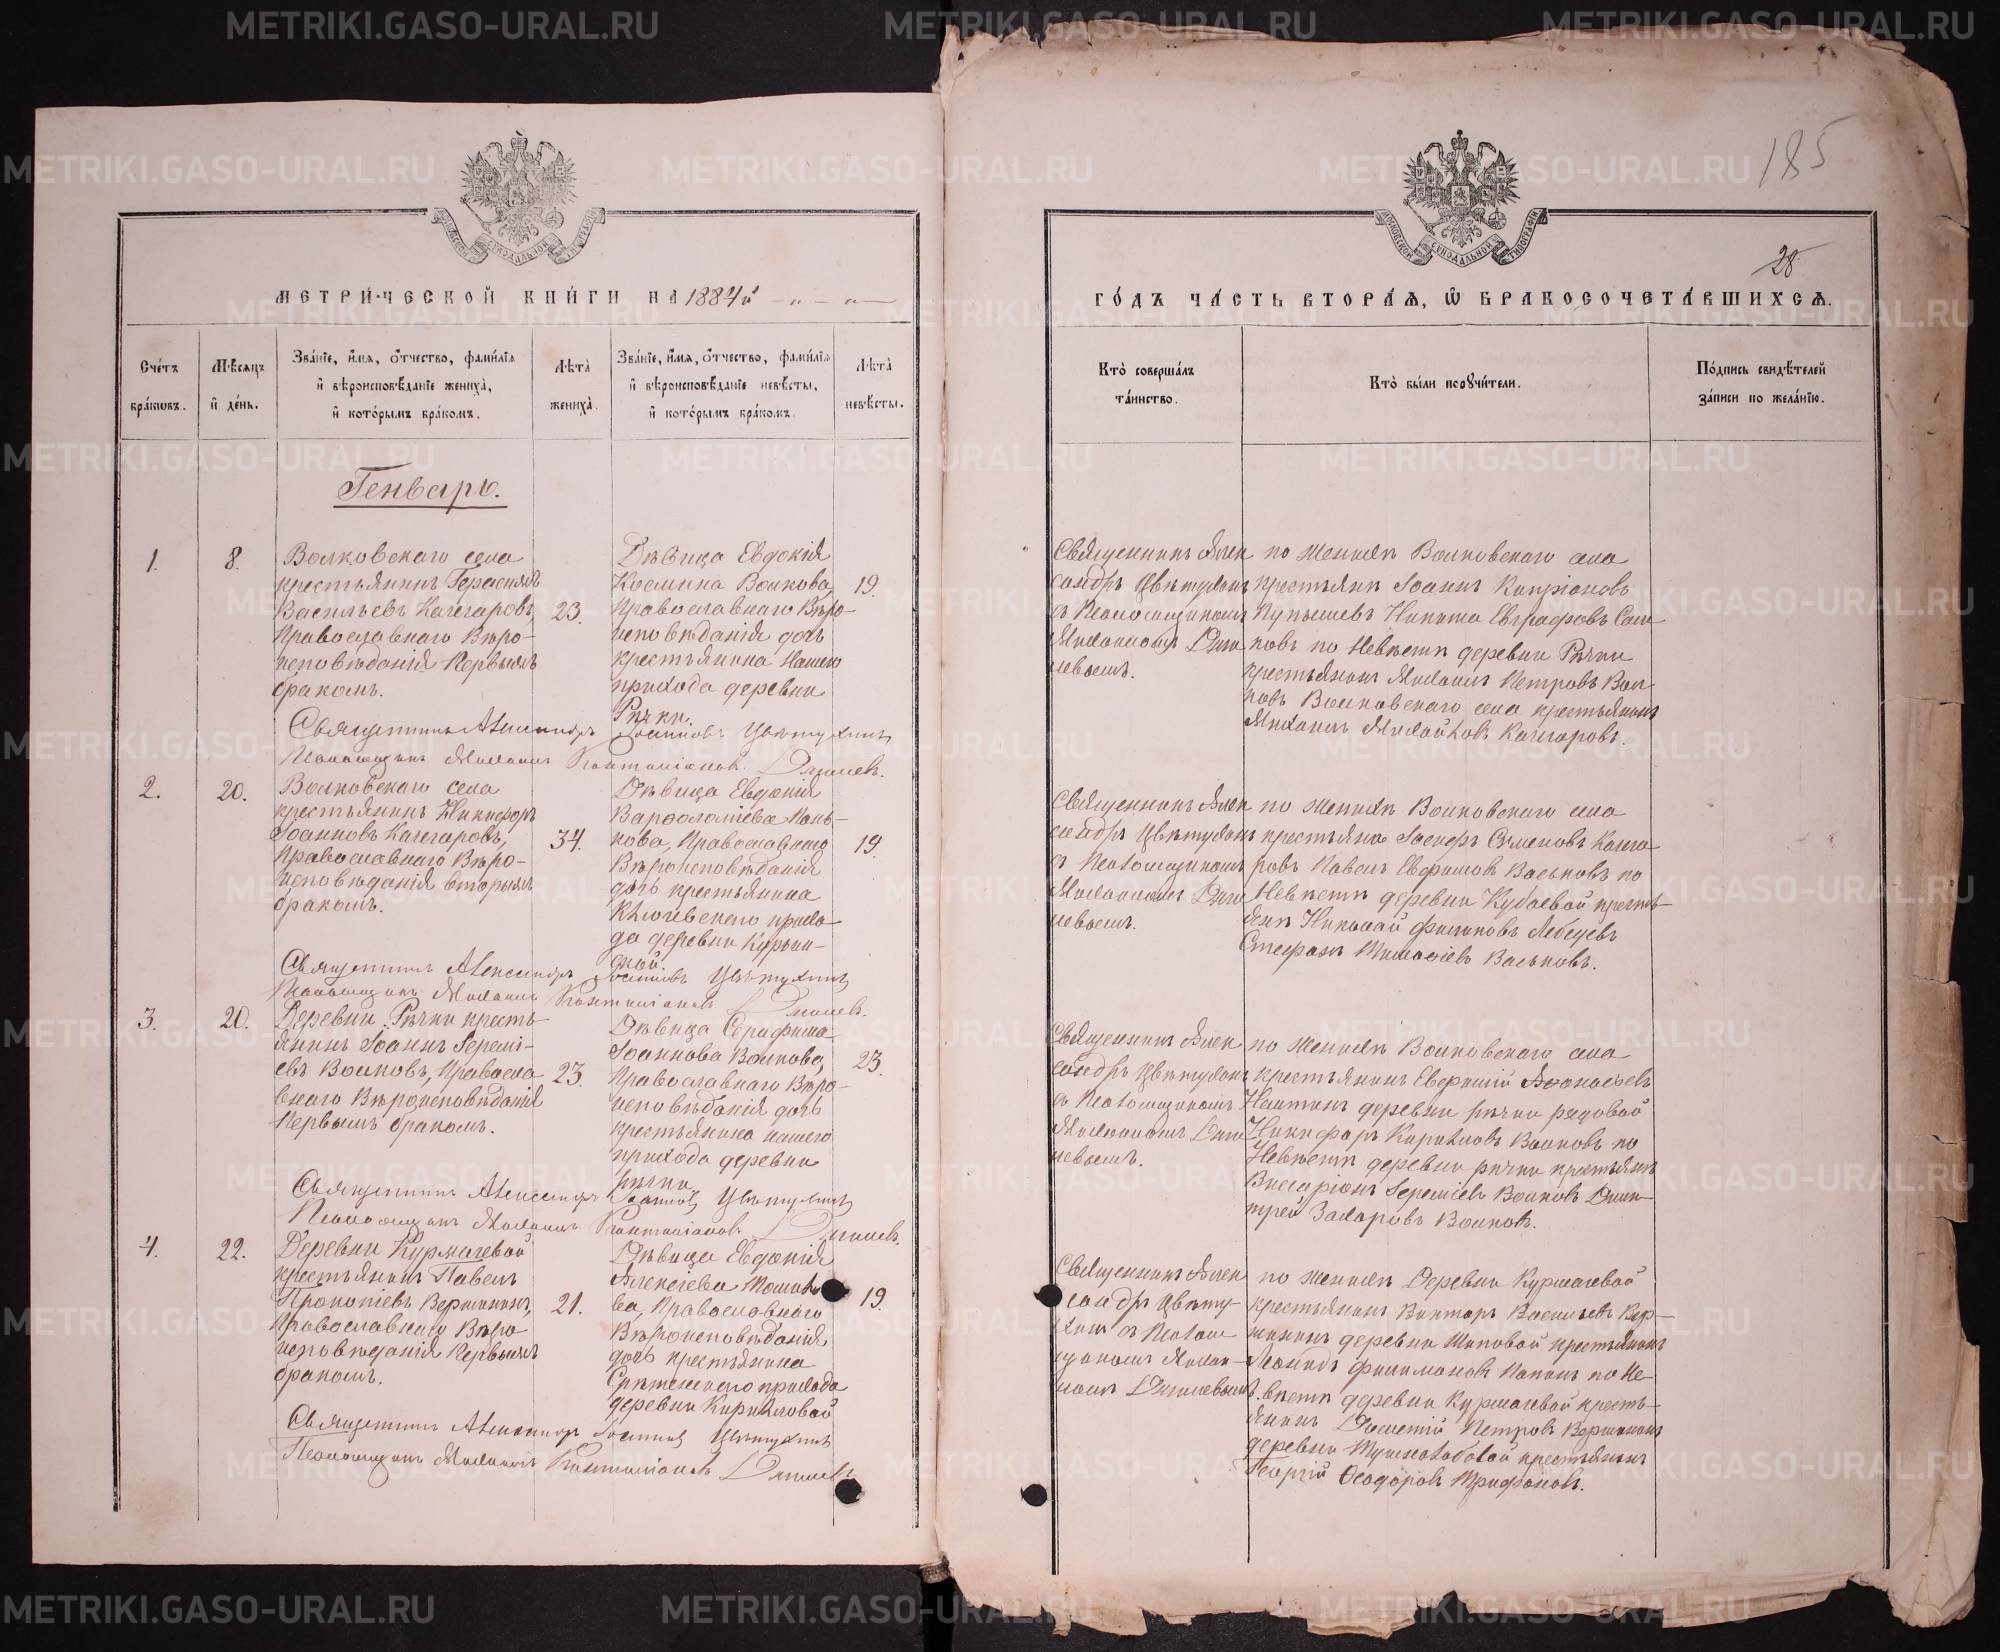 МЕТРИЧЕСКОЙ КНИГИ НА 1884й
Счетъ браковъ.
Мѣсяцъ и день.
Званіе, имя, отчество, фамилія и вѣроисповѣданіе жениха, и которымъ бракомъ.
Лѣта жениха.
Званіе, имя, отчество, фамилія и вѣроисповѣданіе невѣсты, и которымъ бракомъ.
Лѣта невѣсты.
Генварь.
1.
8.
Волковскаго села
крестьянинъ Герасимъ
Васильевъ Качегаровъ,
Православнаго Вѣро-
исповѣданія Первымъ
бракомъ.
23.
Дѣвица Евдокія
Космина Волкова,
Православнаго Вѣро-
исповѣданія дочь
крестьянина нашего
прихода деревни
Рѣчки.
19.
Священникъ Александръ Іоанновъ Цвѣтухинъ
Псаломщикъ Михаилъ
2.
20.
Волковскаго села
крестьянинъ Никифоръ
Іоанновъ Качегаровъ,
Православнаго Вѣро-
исповѣданія вторымъ
бракомъ.
34.
Дѣвица Евдокія
Варѳоломѣева Пань-
кова, Православнаго
Вѣроисповѣданія
дочь крестьянина
Ключевскаго прихо-
да деревни
19.
Священникъ Александръ Іоанновъ Цвѣтухинъ
Псаломщикъ Михаилъ
3.
20.
Деревни Рѣчки кресть-
янинъ Іоаннъ Іереміе-
евъ Волковъ, Правосла
внаго Вѣроисповѣданія
Первымъ бракомъ.
23.
Дѣвица Серафима
Іоаннова Волкова,
Православнаго Вѣро-
исповѣданія дочь
крестьянина нашего
прихода деревни
рѣчки
23.
Священникъ Александръ Іоанновъ Цвѣтухинъ
Псаломщикъ Михаилъ
4.
22.
Деревни Курмачевой
крестьянинъ Павелъ
Прокопіевъ Вершининъ,
Православнаго Вѣро
исповѣданія Первымъ
бракомъ.
21.
Дѣвица Евдокія
Алексіева
ва, Православнаго
Вѣроисповѣданія
дочь крестьянина
Срѣтенскаго прихода
деревни Кирилловой
19.
Священникъ Александръ Іоанновъ Цвѣтухинъ
Псаломщикъ Михаилъ
185
28
ГОДЪ ЧАСТЬ ВТОРАЯ, Ѿ БРАКОСОЧЕТАВШИХСЯ.
Кто совершалъ таинство.
Кто были поручители.
Подпись свидѣтелей записи по желанію.
Священникъ Алек
сандръ Цвѣтухинъ
съ Псаломщикомъ
Михаиломъ
по женихѣ Волковскаго села
крестьяне Іоаннъ Кипріановъ
Никита Евграфовъ
по Невѣстѣ деревни Рѣчки
крестьянинъ Михаилъ Петровъ Вол-
ковъ Волковскаго села крестьянинъ
Михаилъ Михайловъ Качегаровъ.
Священникъ Алек
сандръ Цвѣтухинъ
съ Псаломщикомъ
Михаиломъ
по женихѣ Волковскаго села
крестьяне Іосифъ Семеновъ Качега
ровъ Павелъ Ефимовъ Васьковъ по
Невѣстѣ деревни Кубаевой кресть-
яне Николай Филиповъ
Стефанъ Васьковъ.
Священникъ Алек
сандръ Цвѣтухинъ
съ Псаломщикомъ
Михаиломъ
по женихѣ Волковскаго села
крестьянинъ Евфимій Аѳанасьевъ
деревни рѣчки рядовой
Никифоръ Кириловъ Волковъ по
Невѣстѣ деревни рѣчки крестьяне
Виссаріонъ Іереміевъ Волковъ Дми-
трей Захаровъ Волковъ.
Священникъ Алек
сандръ Цвѣту-
хинъ съ Псалом
щикомъ Михаи-
ломъ
по женихѣ Деревни Курмачевой
крестьянинъ Викторъ Васильевъ Вер-
шининъ деревни Шиповой крестьянинъ
Леонидъ Филимоновъ Папинъ по Не-
вѣстѣ деревни Курмачевой кресть-
янинъ Петровъ Вершининъ
деревни крестьянинъ
Георгій Ѳеодоровъ Трифоновъ.
METRIKI.GASO-URAL.RU